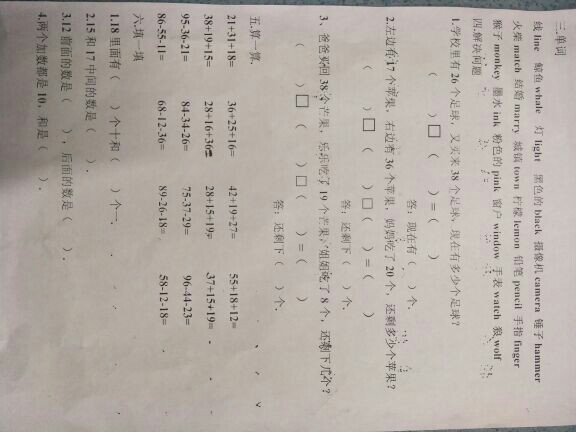 三.单词
线 line 鲸鱼 whale 灯 light 黑色的 black 摄像机 camera 锤子 hammer
火柴 match 结婚 marry 城镇 town 柠檬 lemon 铅笔 pencil 手指 finger
猴子 monkey 墨水 ink 粉色的 pink 窗户 window 手表 watch 狼 wolf
四.解决问题
1.学校里有 26 个足球，又买来 38 个足球，现在有多少个足球？
（ ）□（ ）＝（ ）
答：现在有（ ）个.
2.左边有 17 个苹果，右边有 36 个苹果，妈妈吃了 20 个，还剩多少个苹果？
（ ）□（ ）□（ ）＝（ ）
答：还剩下（ ）个.
3、爸爸买回 38 个芒果，乐乐吃了 19 个芒果，姐姐吃了 8 个，还剩下几个？
（ ）□（ ）□（ ）＝（ ）
答：还剩下（ ）个.
五.算一算.
21+31+18= 36+25+16= 42+19+27= 55+18+12=
38+19+15= 28+16+36= 28+15+19= 37+15+19=
95-36-21= 84-34-26= 75-37-29= 96-44-23=
86-55-11= 68-12-36= 89-26-18= 58-12-18=
六.填一填
1.18 里面有（ ）个十和（ ）个一.
2.15 和 17 中间的数是（ ）.
3.12 前面的数是（ ），后面的数是（ ）.
4.两个加数都是 10，和是（ ）.